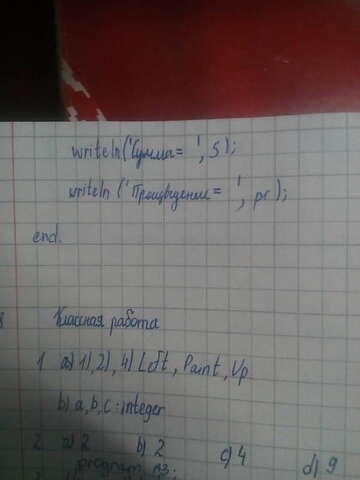 writeln('Сумма= ', S);
writeln ('Произведение= ', pr);
end.
Классная работа
1 a) 1), 2), 4) Left, Paint, Up
b) a, b, c : integer
2 a) 2 b) 2 c) 4 d) 9
program